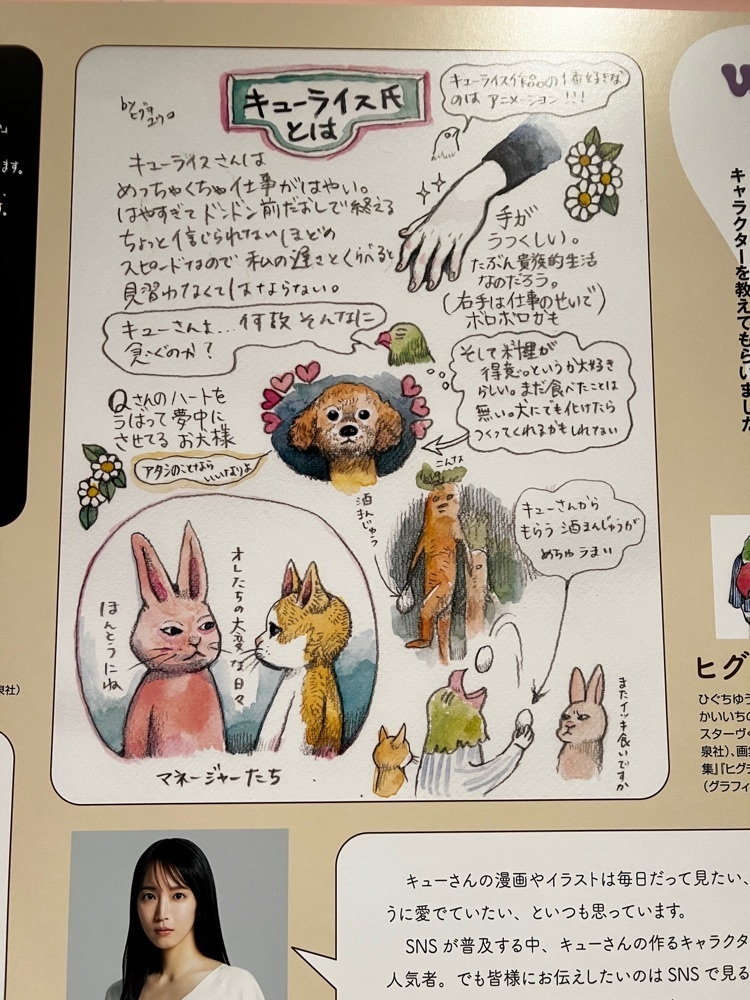 by
ヒグチ
ユウコ
キューライス氏
とは
キューライス作品の1番好きな
のは アニメーション!!!
キューライスさんは
めっちゃくちゃ仕事がはやい。
はやすぎて ドンドン前だおしで終える
ちょっと信じられないほどの
スピードなので 私の遅さとくらべると
見習わなくてはならない。
手が
うつくしい。
たぶん貴族的生活
なのだろう。
(右手は仕事のせいで)
ボロボロかも
キューさんよ…何故 そんなに
急ぐのか?
そして料理が
得意。というか大好き
らしい。まだ食べたことは
無い。犬にでも化けたら
つくってくれるかもしれない
Qさんのハートを
うばって夢中に
させてる お犬様
アタシのことなら
いいなりよ
こんな
酒まんじゅう
キューさんから
もらう 酒まんじゅうが
めちゃ うまい
オレたちの大変な日々
ほんとうにね
マネージャーたち
またイッキ食いですか
キャラクターを教えてもらいました
ヒグ
ひぐちゆう
かいいちの
スターヴ
泉社)、画集
集』『ヒグ
(グラフィ
ます。
泉社)
キューさんの漫画やイラストは毎日だって見たい、
うに愛でていたい、といつも思っています。
SNSが普及する中、キューさんの作るキャラクタ
人気者。でも皆様にお伝えしたいのはSNSで見る